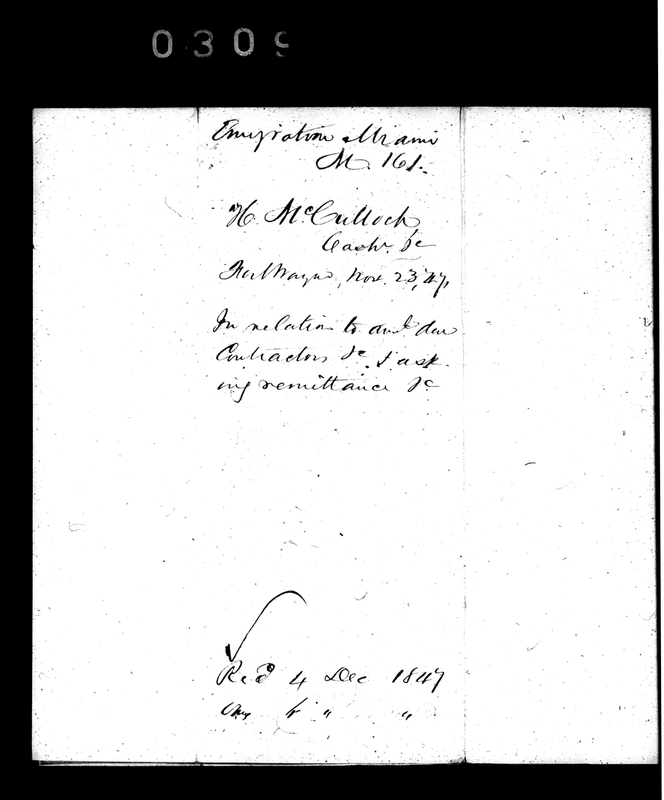 0309
Emigration Miami
M. 161.
H. McCulloch
Cashr. &c
Fort Wayne, Nov. 23, '47,
In relation to amt due
Contractors &c & ask-
ing remittance &c
Recd 4 Dec 1847
Ans " "